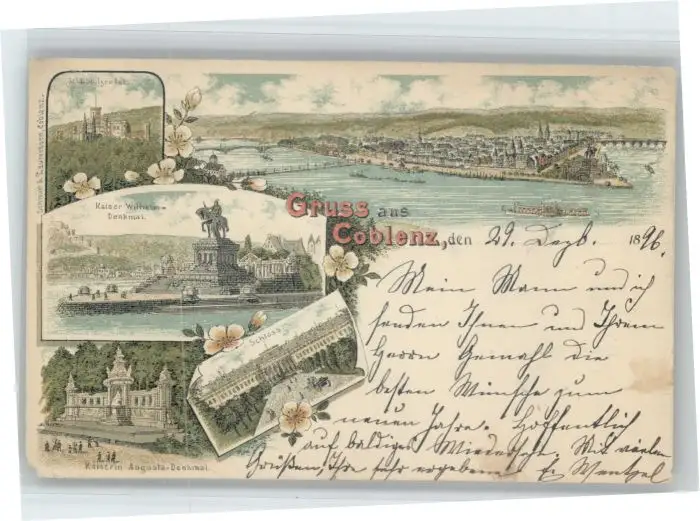 Kaiser Wilhelm-
Denkmal.
Schloss
Kaiserin Augusta-Denkmal.
Gruss aus
Coblenz, den 29. Dezb. 1896.
Mein Mann und ich
senden Ihnen und Ihrem
Herrn Gemahl die
besten Wünsche zum
neuen Jahre. Hoffentlich
auf baldiges Wiedersehn. Mit vielen
Grüßen, Ihre sehr ergebene E. Wentzel